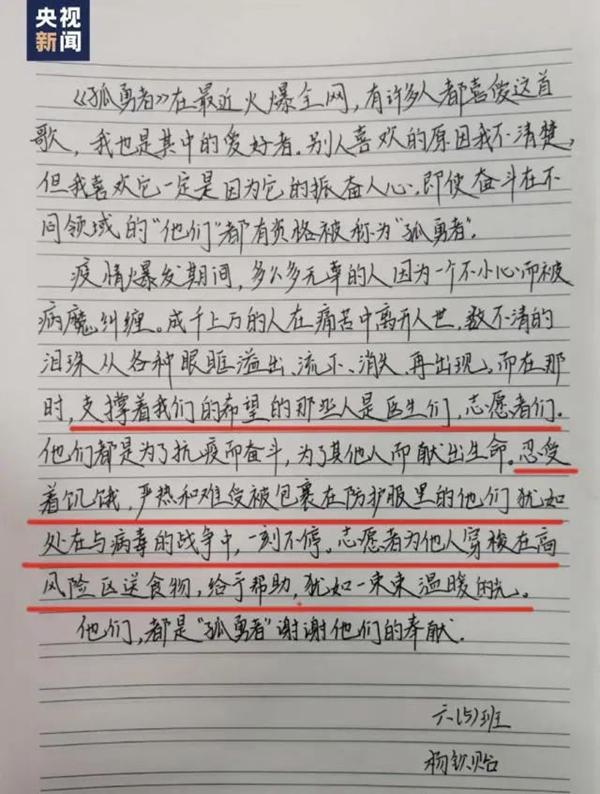 央视
新闻
《孤勇者》在最近火爆全网，有许多人都喜俊这首
歌，我也是其中的爱好者。别人喜欢的原因我不清楚，
但我喜欢它一定是因为它的振奋人心，即使奋斗在不
同领域的“他们”都有资格被称为“孤勇者”。
疫情爆发期间，多么多无辜的人因为一个不小心而被
病魔纠缠。成千上万的人在痛苦中离开人世，数不清的
泪珠从各种眼眶溢出、流下、消失、再出现。而在那
时，支撑着我们的希望的那些人是医生们，志愿者们。
他们都是为了抗疫而奋斗，为了其他人而献出生命。忍受
着饥饿，严热和难受被包裹在防护服里的他们犹如
处在与病毒的战争中，一刻不停。志愿者为他人穿梭在高
风险区送食物，给予帮助，犹如一束束温暖的光。
他们，都是“孤勇者”谢谢他们的奉献.
六（5）班
杨钦贻